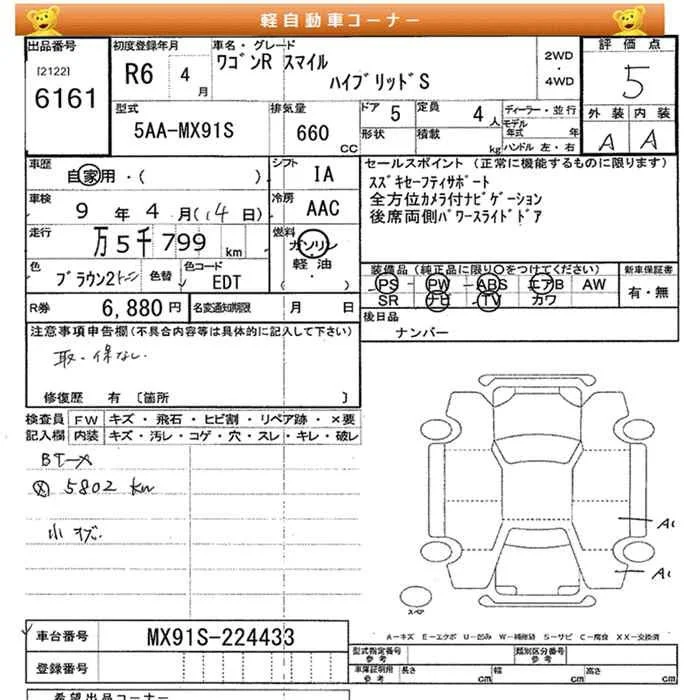 軽自動車コーナー
出品番号
[2122]
6161
初度登録年月
R6 4 月
車名・グレード
ワゴンR スマイル
ハイブリッドS
2WD
・
4WD
評価点
5
外装 内装
A A
型式
5AA-MX91S
排気量
660 CC
ドア 5
形状
定員 4 人
積載 kg
ディーラー・並行
モデル年式 年
ハンドル 左・右
車歴
自家用・( )
シフト IA
車検
9 年 4 月(14日)
冷房 AAC
走行
万5千799 km
燃料
ガソリン
軽油
色
ブラウン2トーン
色替
色コード
EDT
R券 6,880 円
名変通知期限 月 日
セールスポイント(正常に機能するものに限ります)
スズキセーフティサポート
全方位カメラ付ナビゲーション
後席両側パワースライドドア
装備品(純正品に限り○をつけてください)
PS PW ABS エアB AW
SR ナビ TV カワ
新車保証書
有・無
後日品
ナンバー
注意事項申告欄(不具合内容等は具体的に記入して下さい)
取・保なし.
修復歴 有 〔箇所 〕
検査員 FW キズ・飛石・ヒビ割・リペア跡・×要
記入欄 内装 キズ・汚レ・コゲ・穴・スレ・キレ・破レ
BTーX
5802 km
小キズ.
A1
A1
スペア
A-キズ E-エクボ U-凹み W-補修跡 S-サビ C-腐食 XX-交換済
車台番号 MX91S-224433
登録番号
型式指定番号
参考
類別区分番号
参考
車庫証明用
参考
長さ cm 幅 cm 高さ cm
希望出品コーナー